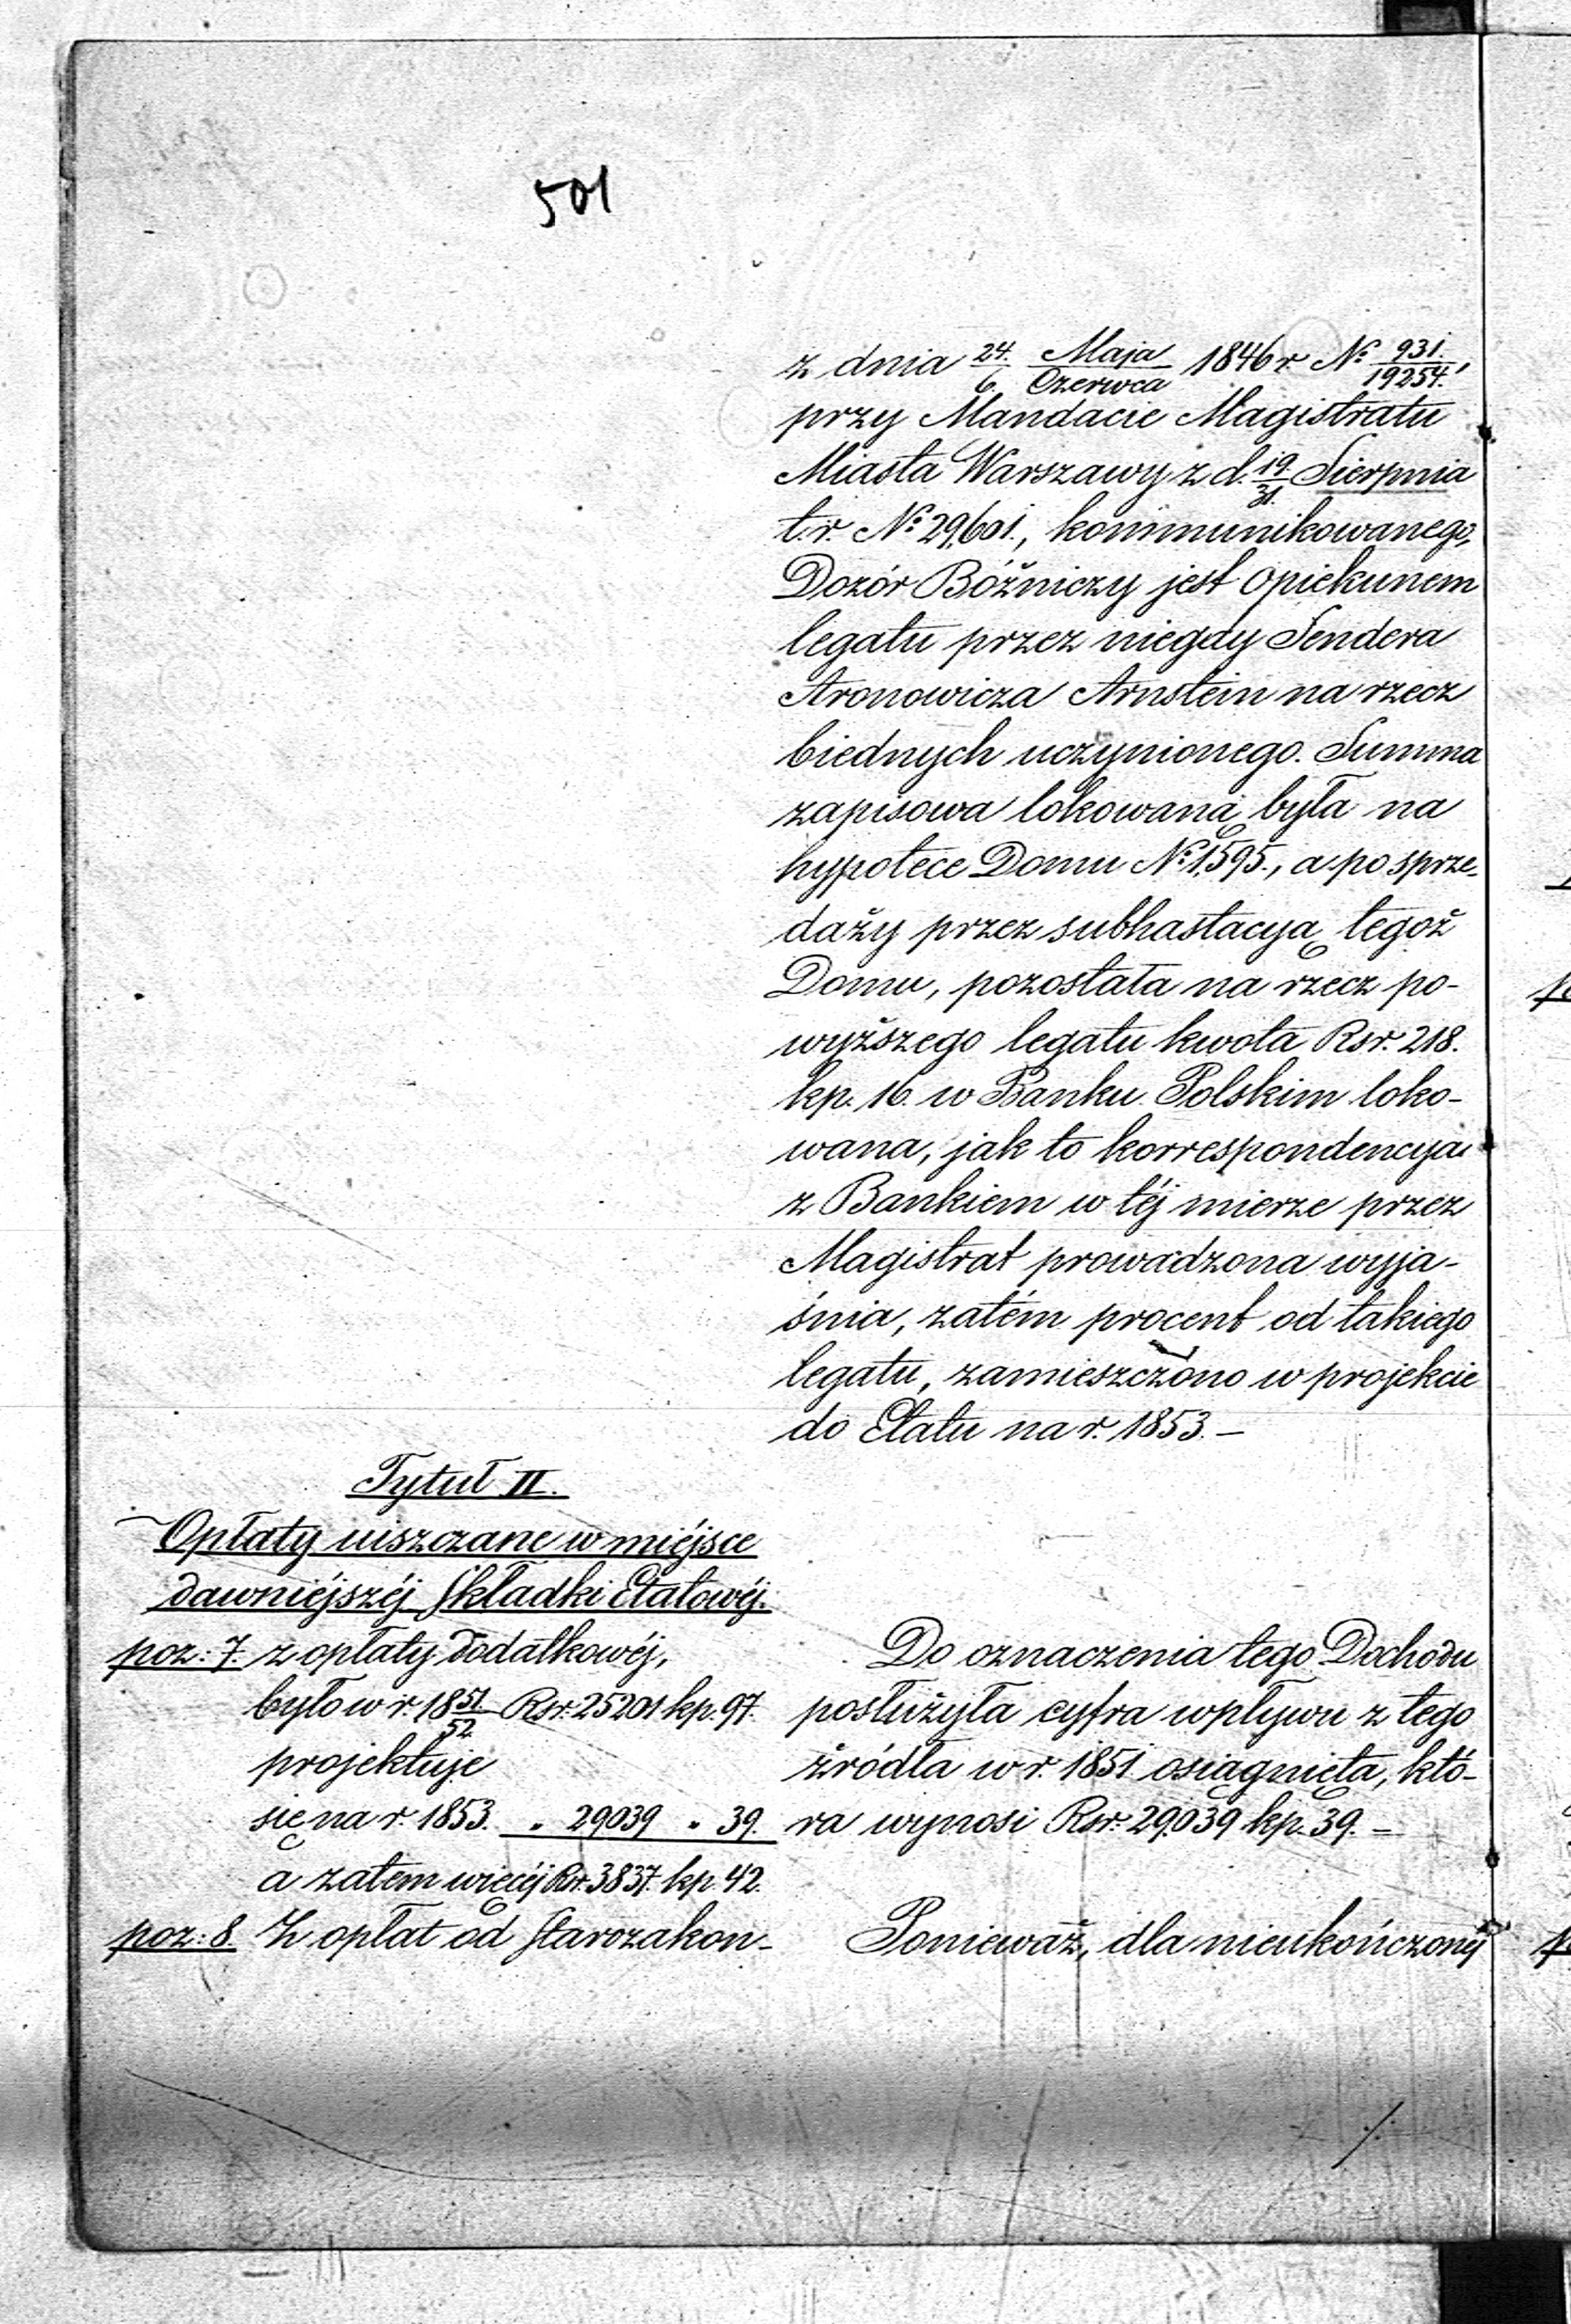 501
z dnia 24./6. Maja/Czerwca 1846 r. № 931./19254.,
przy Mandacie Magistratu
Miasta Warszawy z d. 19/31. Sierpnia
t.r. № 29,601., kommunikowanego,
Dozór Bóżniczy jest Opiekunem
legatu przez niegdy Sendera
Aronowicza Arnstein na rzecz
biednych uczynionego. Summa
zapisowa lokowaną była na
hypotece Domu № 1,595., a po sprze-
daży przez subhastacyą tegoż
Domu, pozostała na rzecz po-
wyższego legatu kwota Rsr. 218.
kp. 16. w Banku Polskim loko-
wana, jak to korrespondencya
z Bankiem w téj mierze przez
Magistrat prowadzona wyja-
śnia, zatém procent od takiego
legatu, zamieszczono w projekcie
do Etatu na r. 1853. –
Tytuł II.
Opłaty uiszczane w miéjsce
dawniéjszéj Składki Etatowéj.
poz: 7. z opłaty dodatkowéj,
było w r. 18 51/52 Rsr. 25201 kp. 97.
projektuje
się na r. 1853. „ 29039 „ 39.
a zatem więcéj Rsr. 3837. kp. 42.
poz: 8. Z opłat od Starozakon-
Do oznaczenia tego Dochodu
posłużyła cyfra wpływu z tego
źródła w r. 1851 osiągnięta, któ-
ra wynosi Rsr. 29,039 kp. 39. –
Ponieważ, dla nieukończonéj